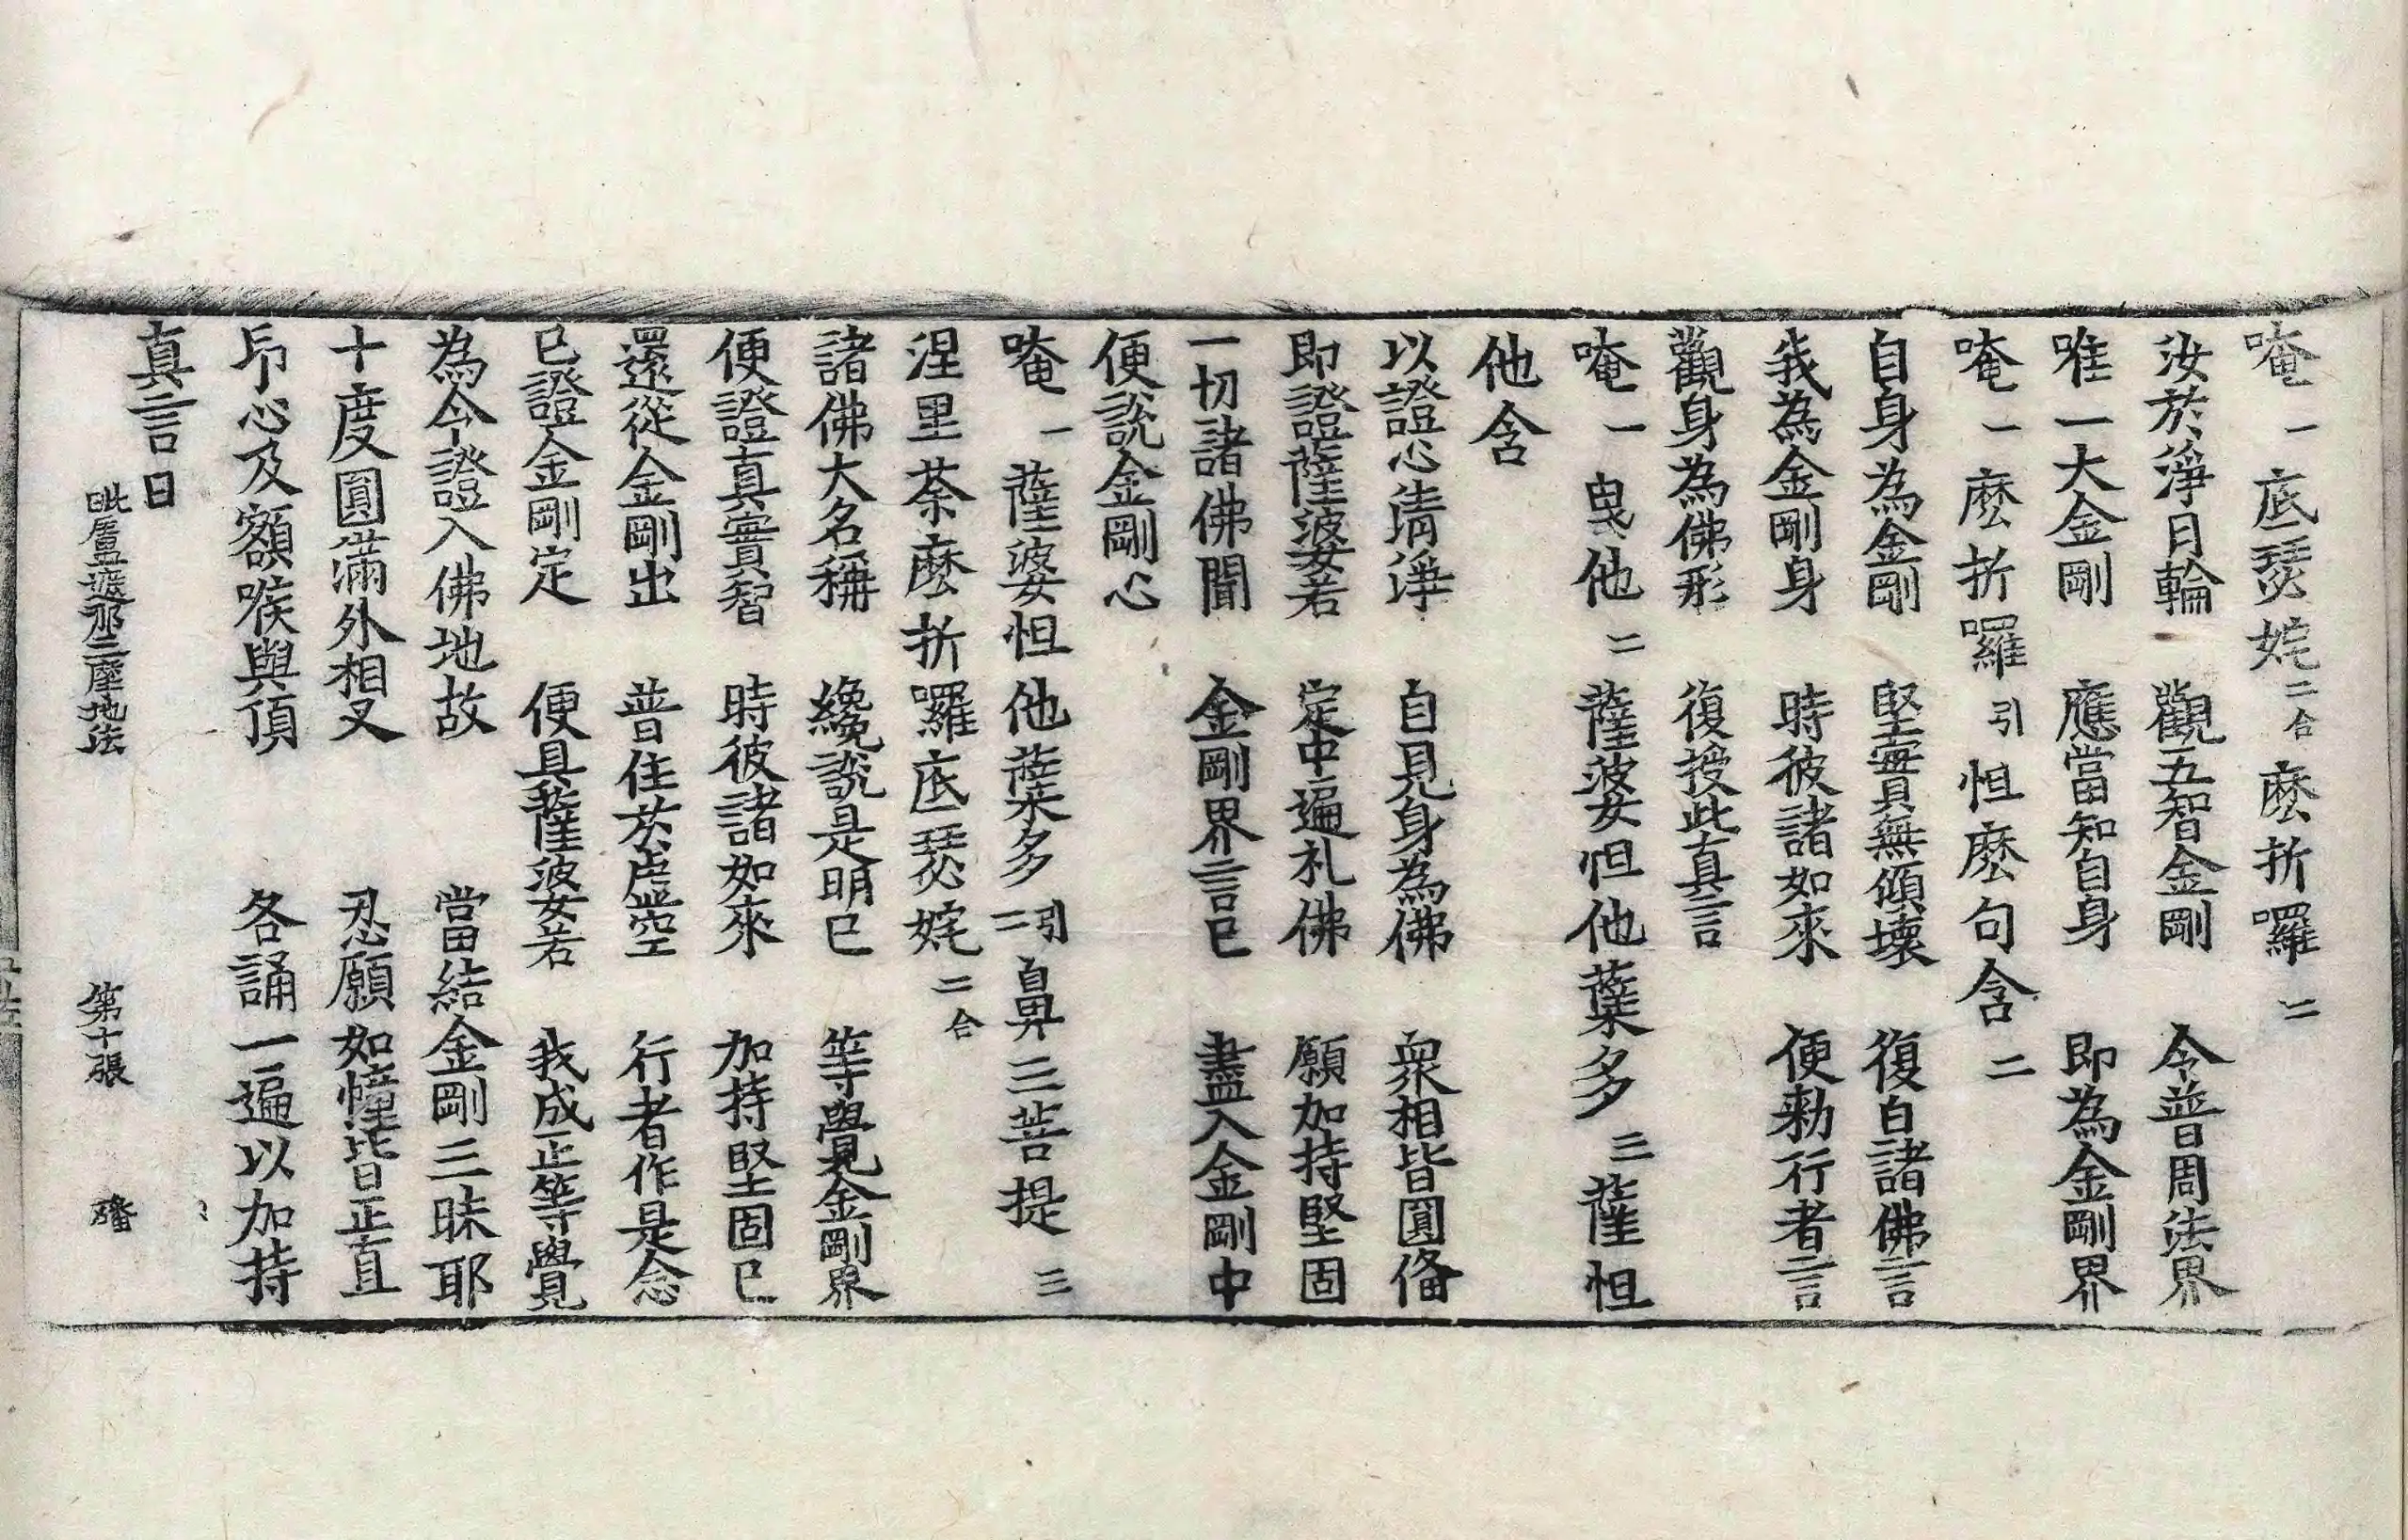 唵一底瑟姹二合麽折囉二
汝於淨月輪　觀五智金剛　令普周法界
唯一大金剛　應當知自身　即為金剛界
唵一麽折囉引怛麽句含二
自身為金剛　堅實無傾壞　復白諸佛言
我為金剛身　時彼諸如來　便勑行者言
觀身為佛形　復授此真言
唵一曳他二薩婆怛他蘖多三薩怛
他含
以證心清淨　自見身為佛　衆相皆圓俻
即證薩婆若　定中遍礼佛　願加持堅固
一切諸佛聞　金剛界言已　盡入金剛中
便說金剛心
唵一薩婆怛他蘖多引二鼻三菩提三
涅里荼麽折囉底瑟姹二合
諸佛大名稱　纔說是明已　等覺金剛界
便證真實智　時彼諸如來　加持堅固已
還從金剛出　普住於虛空　行者作是念
已證金剛定　便具薩婆若　我成正等覺
為令證入佛地故　當結金剛三昧耶
十度圓滿外相叉　忍願如幢皆正直
印心及額喉與頂　各誦一遍以加持
真言曰
毗盧遮那三摩地法　第十張